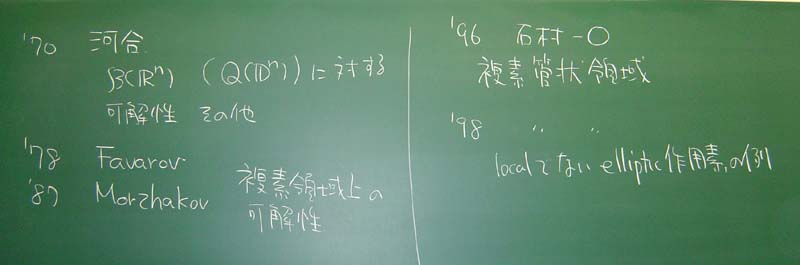 '70 河合
B(ℝⁿ) (Q(𝔻ⁿ)) に対する
可解性 その他
'78 Favarov
'87 Morzhakov
複素領域上の
可解性
'96 石村-O
複素管状領域
'98 〃 〃
localでない elliptic作用素の例